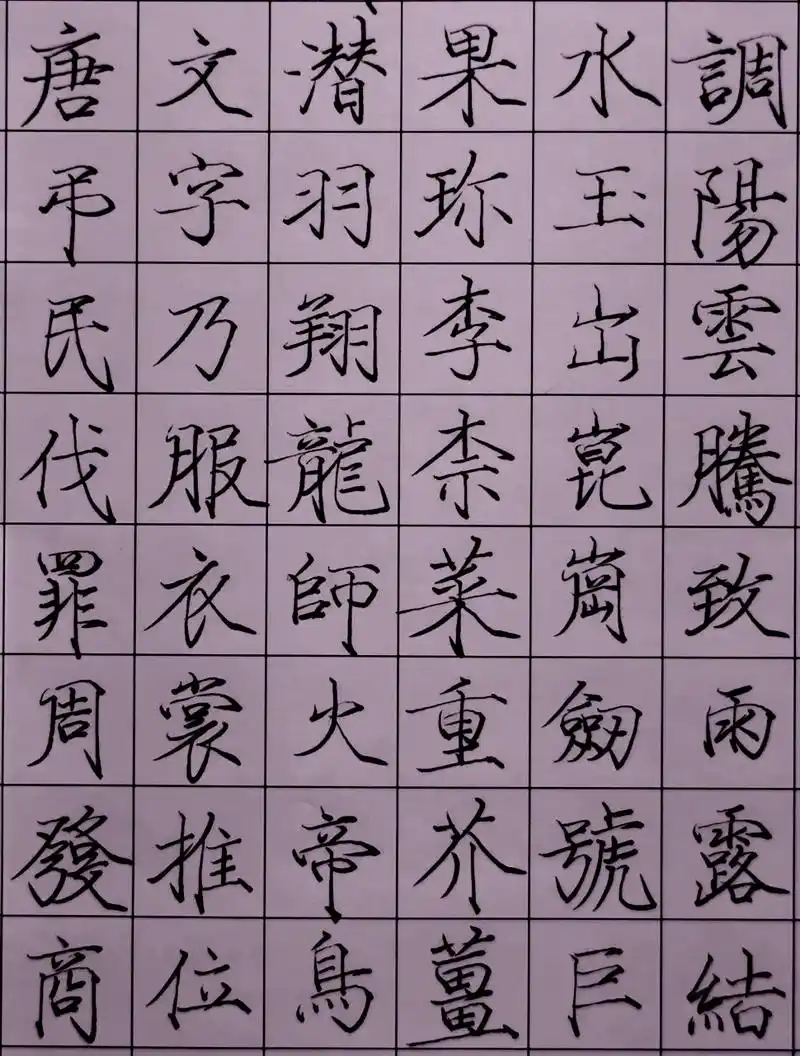 調陽雲騰致雨露結
水玉岀崑崗劒號巨
果珎李柰菜重芥薑
潜羽翔龍師火帝鳥
文字乃服衣裳推位
唐吊民伐罪周發商